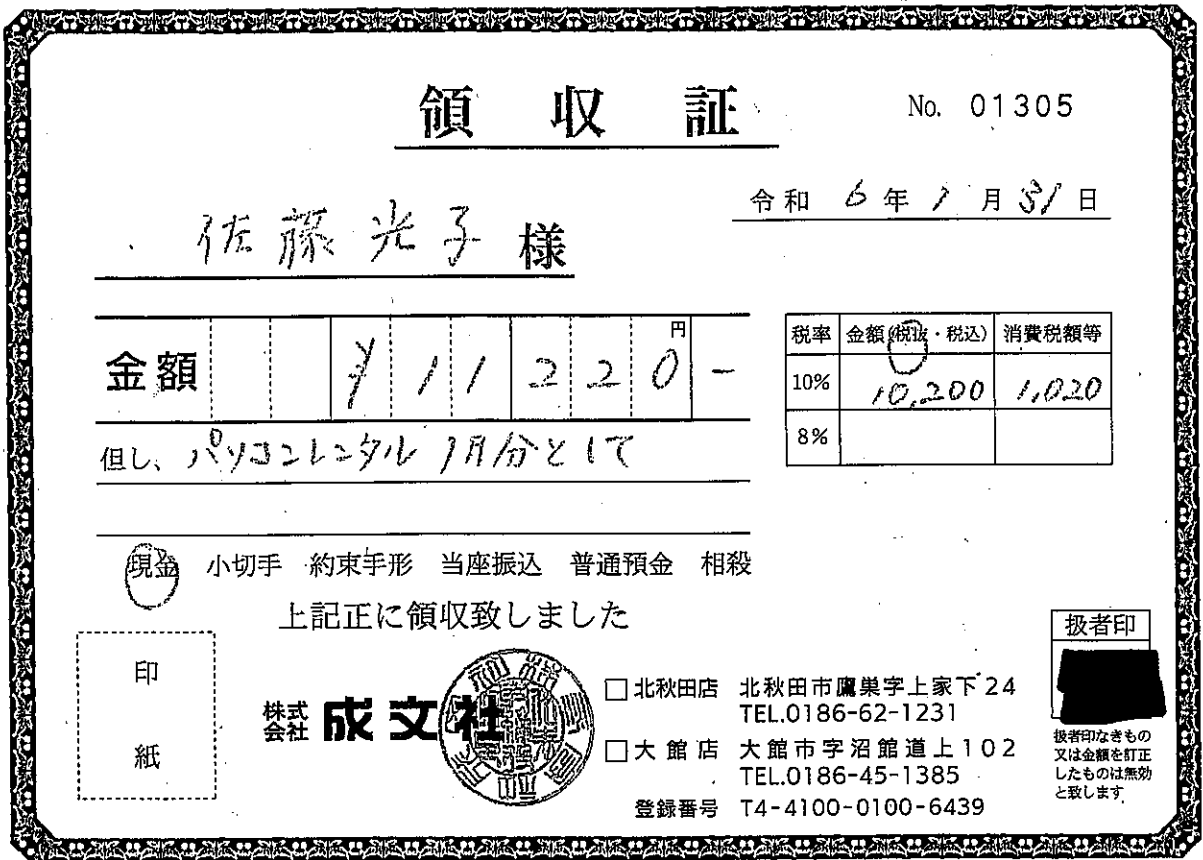 領収証
No. 01305
令和 6年 1月 31日
佐藤光子 様
金額 ¥11220円-
税率 金額(税抜・税込) 消費税額等
10% 10,200 1,020
8%
但し、パソコンレンタル 1月分として
現金 小切手 約束手形 当座振込 普通預金 相殺
上記正に領収致しました
印紙
株式会社 成文社
□北秋田店 北秋田市鷹巣字上家下24
TEL.0186-62-1231
□大館店 大館市字沼館道上102
TEL.0186-45-1385
登録番号 T4-4100-0100-6439
扱者印
扱者印なきもの
又は金額を訂正
したものは無効
と致します